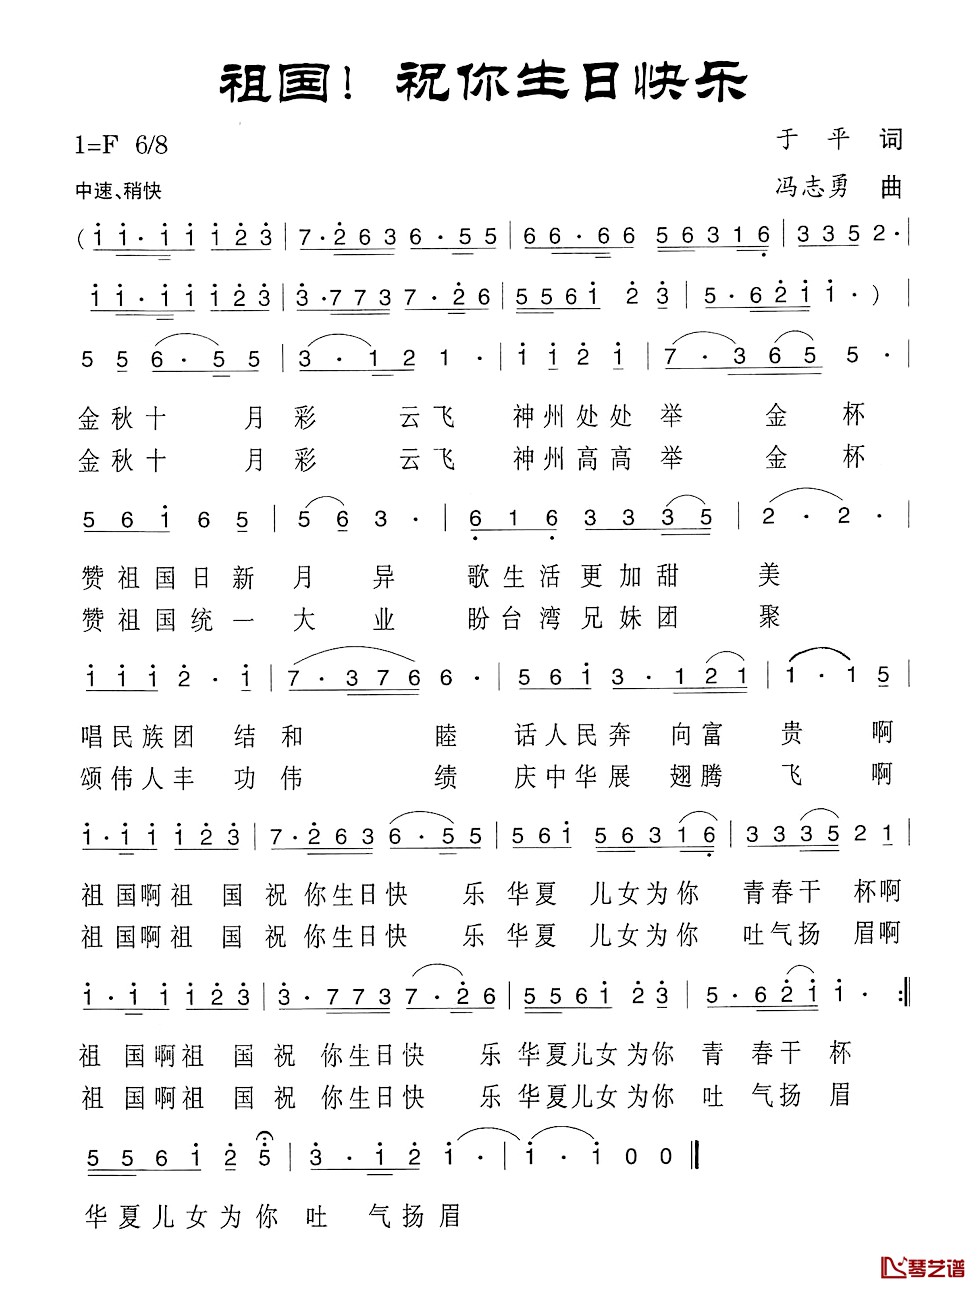 祖国！祝你生日快乐
1=F 6/8
于 平 词
中速、稍快
冯志勇 曲
( i i · i i i i 2 3 | 7 · 2 6 3 6 · 5 5 | 6 6 · 6 6 5 6 3 1 6 | 3 3 5 2 · |
i i · i i i i 2 3 | 3 · 7 7 3 7 · 2 6 | 5 5 6 i 2 3 | 5 · 6 2 i i · ) |
5 5 6 · 5 5 | 3 · 1 2 1 · | i i 2 i | 7 · 3 6 5 5 · |
金秋十 月彩 云飞 神州处处举 金 杯
金秋十 月彩 云飞 神州高高举 金 杯
5 6 i 6 5 | 5 6 3 · | 6 1 6 3 3 3 5 | 2 · 2 · |
赞祖国日新 月 异 歌生活更加甜 美
赞祖国统一 大 业 盼台湾兄妹团 聚
i i i 2 · i | 7 · 3 7 6 6 · | 5 6 i 3 · 1 2 1 | i · i 5 |
唱民族团 结和 睦 话人民奔 向富 贵 啊
颂伟人丰 功伟 绩 庆中华展 翅腾 飞 啊
i · i i i 2 3 | 7 · 2 6 3 6 · 5 5 | 5 6 i 5 6 3 1 6 | 3 3 3 5 2 1 |
祖国啊祖 国祝 你生日快 乐华夏 儿女为你 青春干 杯啊
祖国啊祖 国祝 你生日快 乐华夏 儿女为你 吐气扬 眉啊
i · i i i 2 3 | 3 · 7 7 3 7 · 2 6 | 5 5 6 i 2 3 | 5 · 6 2 i i · :‖
祖 国啊祖 国祝 你生日快 乐华夏儿女为你 青 春干 杯
祖 国啊祖 国祝 你生日快 乐华夏儿女为你 吐 气扬 眉
5 5 6 i 2 5 | 3 · i 2 i · | i · i 0 0 ‖
华夏儿女为你 吐 气扬 眉
琴艺谱